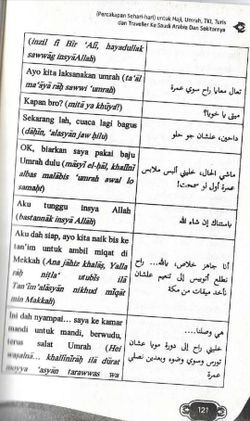 (Percakapan Sehari-hari) untuk Haji, Umrah, TKI, Turis
dan Traveller Ke Saudi Arabia Dan Sekitarnya
(inzil fi Bir 'Ali, hayadullak
sawwāg insyāAllah)
Ayo kita laksanakan umrah (ta'āl
ma'āyā rāḥ sawwi 'umrah)
تعال معايا راح سوي عمرة
Kapan bro? (mitā ya khūya?)
متى يا خويا؟
Sekarang lah, cuaca lagi bagus
(daḥīn, 'alasyān jaw ḥilu)
داحين، علشان جو حلو
OK, biarkan saya pakai baju
Umrah dulu (māsyī el-ḥāl, khallīnī
albas malābis 'umrah awal lo
samaḥt)
ماشي الحال، خليني ألبس ملابس
عمرة أول لو سمحت!
Aku tunggu insya Allah
(bastannāk insyā Allah)
باستناك إن شاء الله
Aku dah siap, ayo kita naik bis ke
tan'im untuk ambil miqat di
Mekkah (Ana jāhiz khalāṣ, Yalla
rāḥ niṭla' utubīs ilā
Tan'īm'alāsyān nikhud mīqāt
min Makkah)
أنا جاهز خلاص، يالله... راح
نطلع أتوبيس إلى تنعيم علشان
نأخذ ميقات من مكة
Ini dah nyampai... saya ke kamar
mandi untuk mandi, berwudu,
terus salat Umrah (Hei
waṣalnā... khallīnīrāḥ ilā dūrat
moyya 'asyān tarawwas wa
هي وصلنا....
خليني راح إلى دورة مويا عشان
تورس وسوي وضوء وبعدين نصلي
عمرة
121